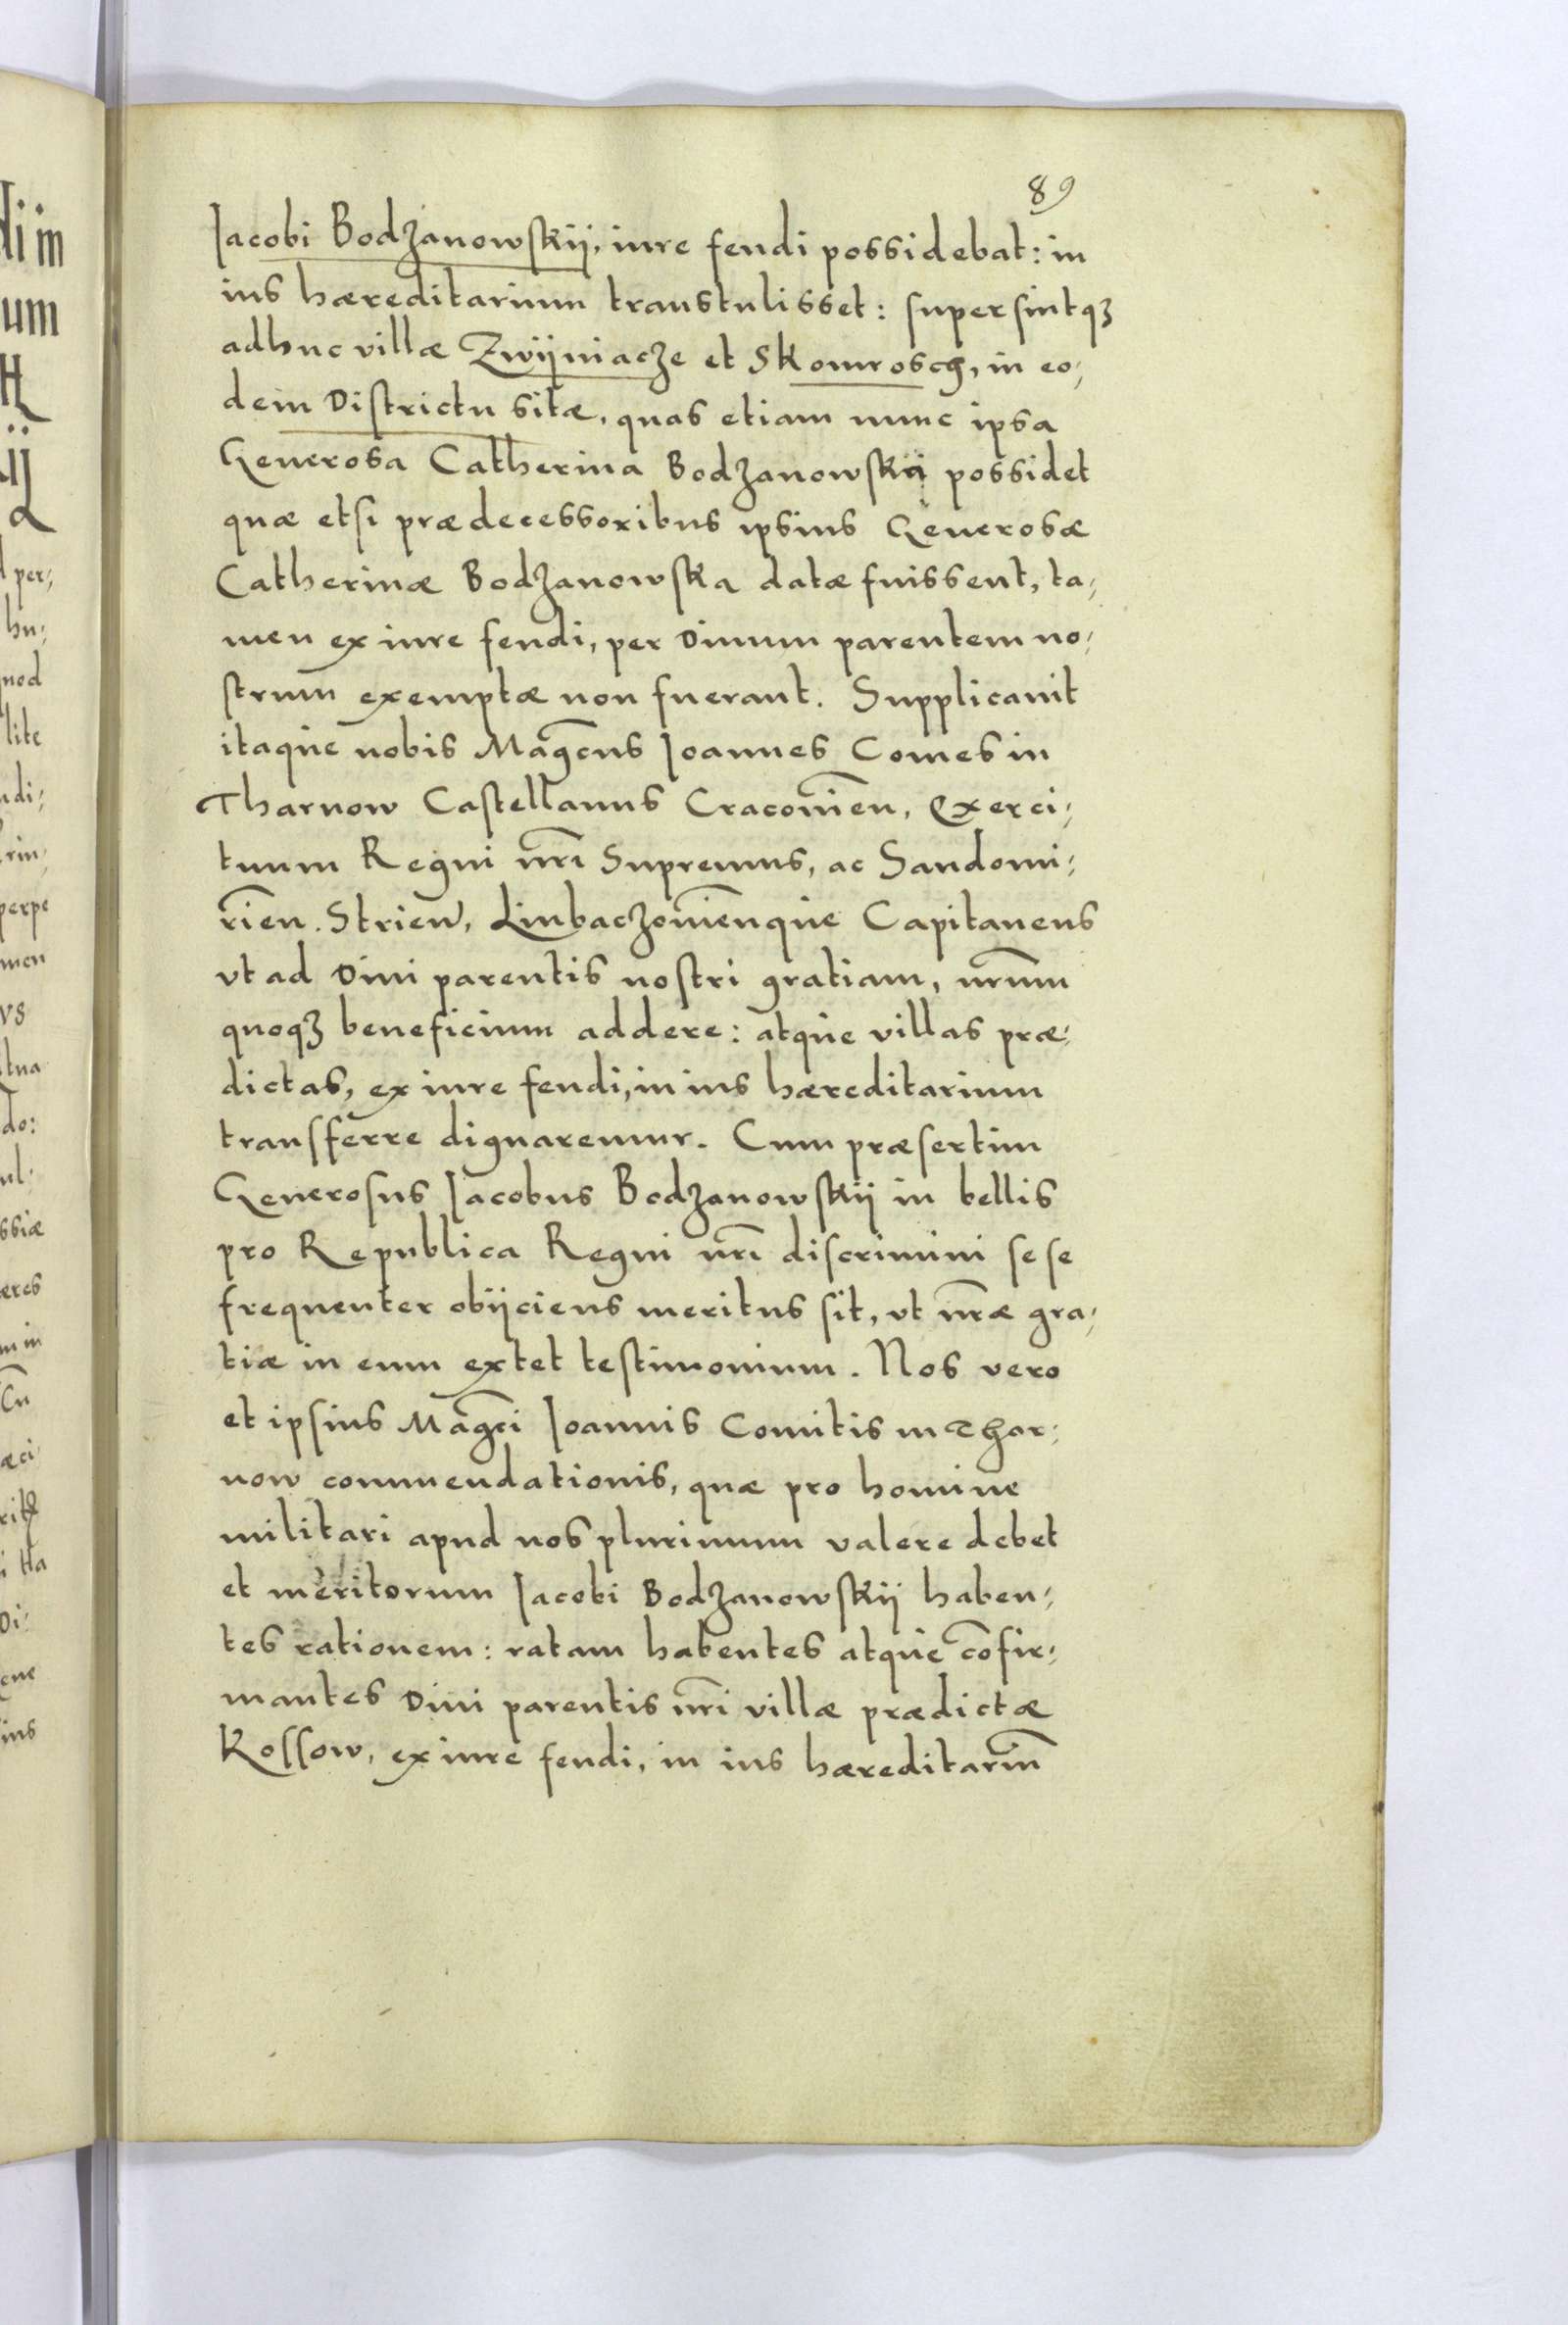 89
Iacobi Bodzanowskij, iure feudi possidebat: in
ius hæreditarium transtulisset: supersintqꝫ
adhuc villæ Zwijniacze et Skomrosch, in eo,
dem Districtu sitæ, quas etiam nunc ipsa
Generosa Catherina Bodzanowska possidet
quæ etsi prædecessoribus ipsius Generosæ
Catherinæ Bodzanowska datæ fuissent, ta,
men ex iure feudi, per Diuum parentem no,
strum exemptæ non fuerant. Supplicauit
itaque nobis Magcus Ioannes Comes in
Tharnow Castellanus Cracouien̄, Exerci,
tuum Regni nr̄i Supremus, ac Sandomi,
rien̄. Strien̄, Liubaczouien̄que Capitaneus
vt ad Diui parentis nostri gratiam, nr̄um
quoqꝫ beneficium addere: atque villas præ,
dictas, ex iure feudi, in ius hæreditarium
transferre dignaremur. Cum præsertim
Generosus Iacobus Bodzanowskij in bellis
pro Republica Regni nr̄i discrimini sese
frequenter obijciens meritus sit, vt nr̄æ gra,
tiæ in eum extet testimonium. Nos vero
et ipsius Magci Ioannis Comitis in Thar,
now commendationis, quæ pro homine
militari apud nos plurimum valere debet
et meritorum Iacobi Bodzanowskij haben,
tes rationem: ratam habentes atque cōfir,
mantes Diui parentis nr̄i villæ prædictæ
Kossow, ex iure feudi, in ius hæreditariū